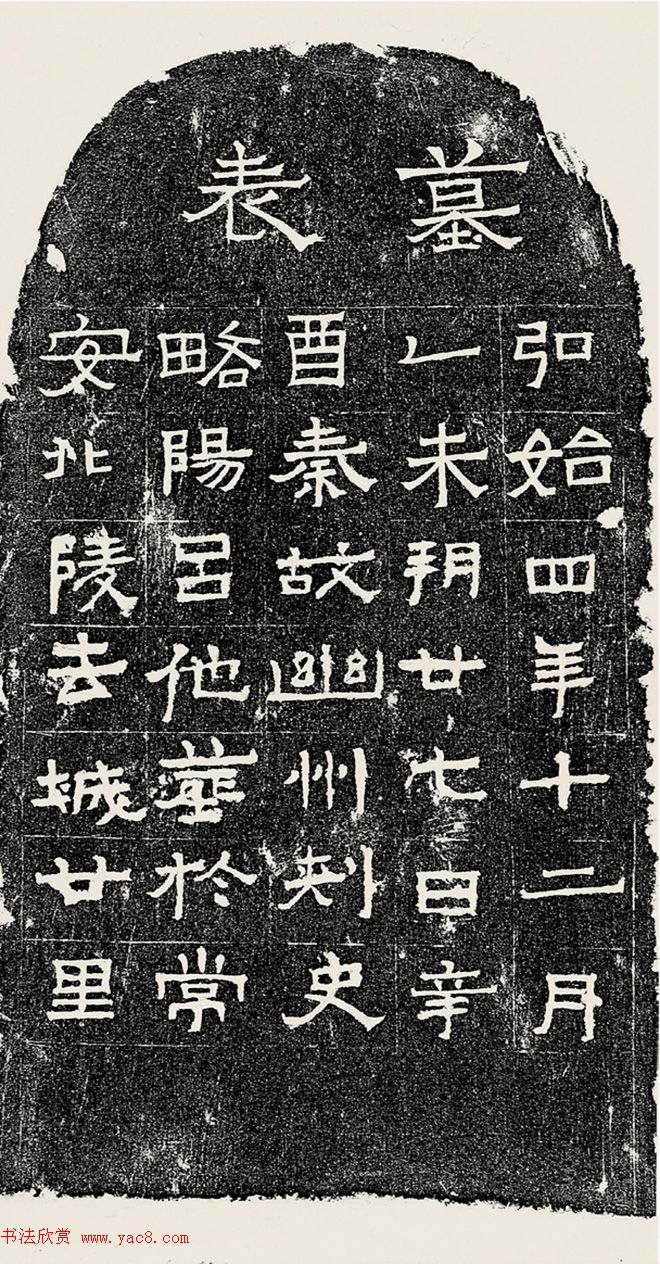 墓表
弘始四年十二月
乙未朔廿七日辛
酉秦故幽州刺史
略陽呂他葬於常
安北陵去城廿里
书法欣赏 www.yac8.com